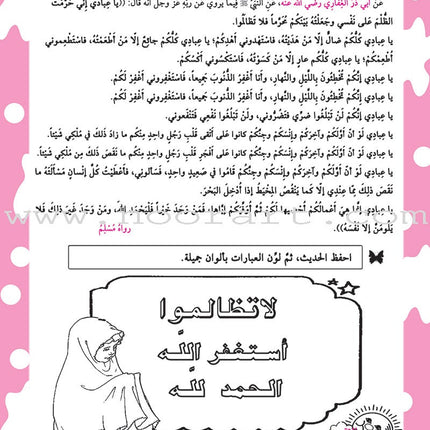 عَنْ أَبِي ذَرٍّ الغِفَارِيِّ رضي الله عنه، عَنِ النَّبِيِّ ﷺ فِيمَا يَروي عَن رَبِّهِ عَزَّ وَجَلَّ أَنَّهُ قَالَ: ((يا عِبادي إِنِّي حَرَّمْتُ
الظُّلْمَ عَلَى نَفْسِي وَجَعَلْتُهُ بَيْنَكُمْ مُحَرَّماً فَلا تَظَالَمُوا.
يا عِبادي كُلُّكُمْ ضالٌّ إِلَّا مَنْ هَدَيْتُهُ، فاسْتَهدوني أَهْدِكُمْ؛ يا عِبادي كُلُّكُمْ جائِعٌ إِلَّا مَنْ أَطْعَمْتُهُ، فاسْتَطْعِموني
أُطْعِمْكُمْ؛ يا عِبادي كُلُّكُمْ عارٍ إِلَّا مَنْ كَسَوْتُهُ، فاسْتَكْسُوني أَكْسُكُمْ.
يا عِبادي إِنَّكُمْ تُخْطِئُونَ بِاللَّيْلِ والنَّهارِ، وأَنَا أَغْفِرُ الذُّنُوبَ جَمِيعاً، فَاسْتَغْفِرُوني أَغْفِرْ لَكُمْ.
يا عِبادي إِنَّكُمْ تُخْطِئُونَ بِاللَّيْلِ والنَّهارِ، وأَنَا أَغْفِرُ الذُّنُوبَ جَمِيعاً، فَاسْتَغْفِرُوني أَغْفِرْ لَكُمْ.
يا عِبادي إِنَّكُمْ لَنْ تَبْلُغُوا ضَرِّي فَتَضُرُّوني، وَلَنْ تَبْلُغُوا نَفْعِي فَتَنْفَعُوني.
يا عِبادي لَوْ أَنَّ أَوَّلَكُمْ وآخِرَكُمْ وإِنْسَكُمْ وجِنَّكُمْ كانوا عَلَى أَتْقَى قَلْبِ رَجُلٍ واحِدٍ مِنْكُمْ ما زادَ ذَلِكَ في مُلْكِي شَيْئاً.
يا عِبادي لَوْ أَنَّ أَوَّلَكُمْ وآخِرَكُمْ وإِنْسَكُمْ وجِنَّكُمْ كانوا عَلَى أَفْجَرِ قَلْبِ رَجُلٍ واحِدٍ مِنْكُمْ ما نَقَصَ ذَلِكَ مِنْ مُلْكِي شَيْئاً.
يا عِبادي لَوْ أَنَّ أَوَّلَكُمْ وآخِرَكُمْ وإِنْسَكُمْ وجِنَّكُمْ قَامُوا فِي صَعِيدٍ واحِدٍ، فَسَأَلوني، فَأَعْطَيْتُ كُلَّ إِنسانٍ مَسْأَلَتَهُ ما
نَقَصَ ذَلِكَ مِمَّا عِنْدِي إِلَّا كَما يَنْقُصُ المِخْيَطُ إِذا أُدْخِلَ البَحْرَ.
يا عِبادي إِنَّما هِيَ أَعْمَالُكُمْ أُحْصِيها لَكُمْ ثُمَّ أُوَفِّيكُمْ إِيَّاها، فَمَنْ وَجَدَ خَيْراً فَلْيَحْمَدِ اللهَ، ومَنْ وَجَدَ غَيْرَ ذَلِكَ فَلا
يَلُومَنَّ إِلَّا نَفْسَهُ)).
رواهُ مُسْلِمٌ
www.noorart.com
احفظ الحديث، ثمّ لوّن العبارات بألوان جميلة.
لا تظالموا
أستغفر الله
الحمد لله